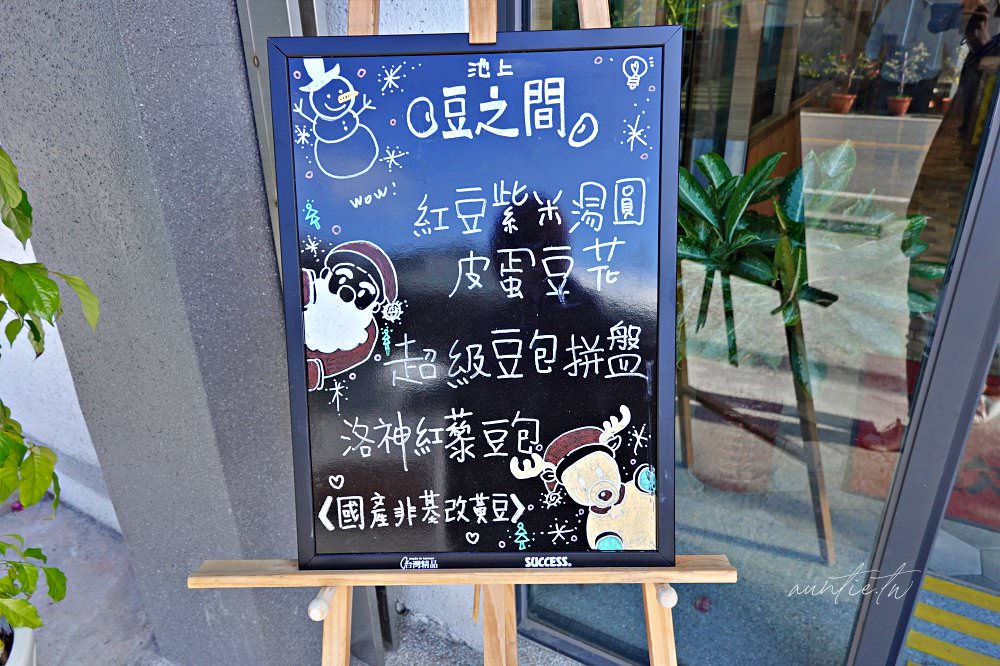 池上
豆之間
wow!
紅豆紫米湯圓
皮蛋豆花
超級豆包拼盤
洛神紅藜豆包
《國產非基改黃豆》
台灣精品
SUCCESS®
auntie.tw